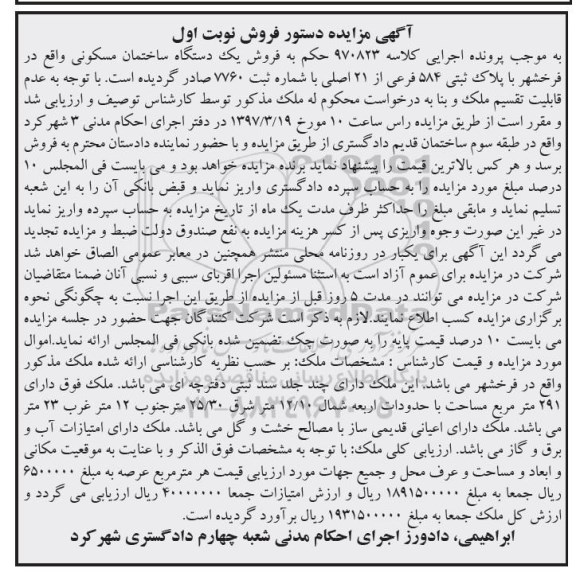 آگهی مزایده دستور فروش نوبت اول
به موجب پرونده اجرایی کلاسه ۹۷۰۸۲۳ حکم به فروش یک دستگاه ساختمان مسکونی واقع در
فرخشهر با پلاک ثبتی ۵۸۴ فرعی از ۲۱ اصلی با شماره ثبت ۷۷۶۰ صادر گردیده است. با توجه به عدم
قابلیت تقسیم ملک و بنا به درخواست محکوم له ملک مذکور توسط کارشناس توصیف و ارزیابی شد
و مقرر است از طریق مزایده راس ساعت ۱۰ مورخ ۱۳۹۷/۳/۱۹ در دفتر اجرای احکام مدنی ۳ شهرکرد
واقع در طبقه سوم ساختمان قدیم دادگستری از طریق مزایده و با حضور نماینده دادستان محترم به فروش
برسد و هر کس بالاترین قیمت را پیشنهاد نماید برنده مزایده خواهد بود و می بایست فی المجلس ۱۰
درصد مبلغ مورد مزایده را به حساب سپرده دادگستری واریز نماید و قبض بانکی آن را به این شعبه
تسلیم نماید و مابقی مبلغ را حداکثر ظرف مدت یک ماه از تاریخ مزایده به حساب سپرده واریز نماید
در غیر این صورت وجوه واریزی پس از کسر هزینه مزایده به نفع صندوق دولت ضبط و مزایده تجدید
می گردد این آگهی برای یکبار در روزنامه محلی منتشر همچنین در معابر عمومی الصاق خواهد شد
شرکت در مزایده برای عموم آزاد است به استثنا مسئولین اجرا|اقربای سببی و نسبی آنان ضمنا متقاضیان
شرکت در مزایده می توانند در مدت ۵ روز قبل از مزایده از طریق این اجرا نسبت به چگونگی نحوه
برگزاری مزایده کسب اطلاع نمایند.لازم به ذکر است شرکت کنندگان جهت حضور در جلسه مزایده
می بایست ۱۰ درصد قیمت پایه را به صورت چک تضمین شده بانکی فی المجلس ارائه نماید.اموال
مورد مزایده و قیمت کارشناس : مشخصات ملک: بر حسب نظریه کارشناسی ارائه شده ملک مذکور
واقع در فرخشهر می باشد. این ملک دارای چند جلد سند ثبتی دفترچه ای می باشد. ملک فوق دارای
۲۹۱ متر مربع مساحت با حدودات اربعه شمال ۱۲/۱۰ متر شرق ۲۵/۳۰ مترجنوب ۱۲ متر غرب ۲۳ متر
می باشد. ملک دارای اعیانی قدیمی ساز با مصالح خشت و گل می باشد. ملک دارای امتیازات آب و
برق و گاز می باشد. ارزیابی کلی ملک: با توجه به مشخصات فوق الذکر و با عنایت به موقعیت مکانی
و ابعاد و مساحت و عرف محل و جمیع جهات مورد ارزیابی قیمت هر مترمربع عرصه به مبلغ ۶۵۰۰۰۰۰
ریال جمعا به مبلغ ۱۸۹۱۵۰۰۰۰۰ ریال و ارزش امتیازات جمعا ۴۰۰۰۰۰۰۰ ریال ارزیابی می گردد و
ارزش کل ملک جمعا به مبلغ ۱۹۳۱۵۰۰۰۰۰ ریال بر آورد گردیده است.
ابراهیمی، دادورز اجرای احکام مدنی شعبه چهارم دادگستری شهرکرد